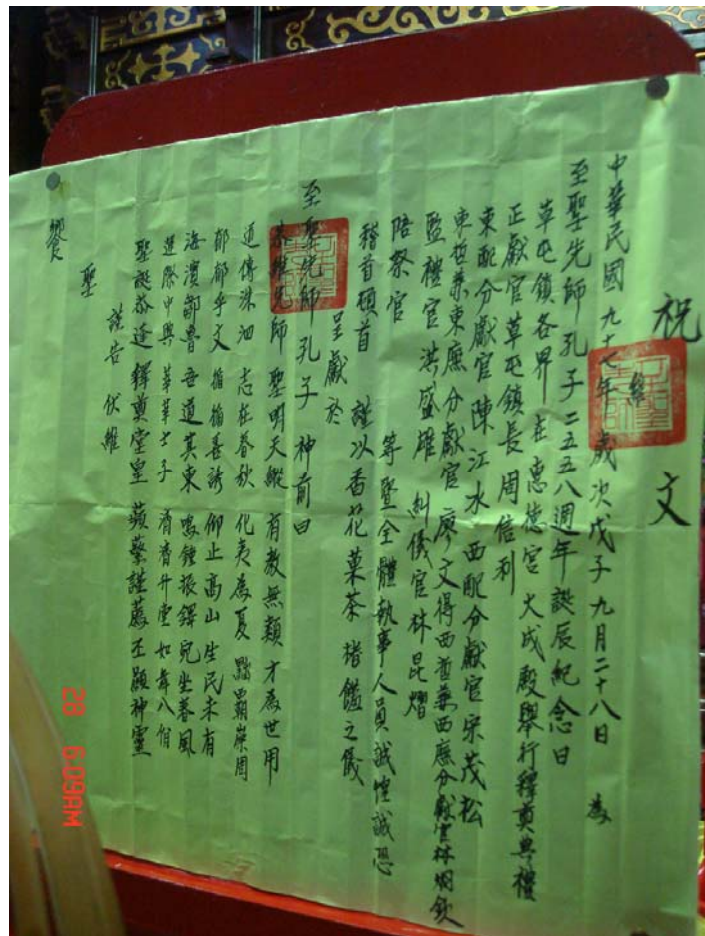 祝文
維
中華民國九十七年 歲次戊子九月二十八日 為
至聖先師孔子二五五八週年誕辰紀念日
草屯鎮各界在惠德宮大成殿舉行釋奠典禮
正獻官草屯鎮長 周信利
東配分獻官陳江水 西配分獻官宋茂松
東哲兼東廡分獻官廖文得西哲兼西廡分獻官林炯欽
監禮官 洪盛雄 糾儀官林昆熠
陪祭官 等暨全體執事人員誠惶誠恐
稽首頓首 謹以香花菓茶 之儀
呈獻於
至聖先師孔子 神前曰
恭維先師 聖明天縱 有教無類 才為世用
道傳洙泗 志在春秋 化夷為夏 黜霸崇周
郁郁乎文 循循善誘 仰止高山 生民未有
海濱鄒魯 吾道其東 鳴鐘振鐸 宛坐春風
進際中興 莘莘士子 濟濟升堂 如舞八佾
聖誕恭逢 釋奠堂皇 蘋蘩謹薦 丕顯神靈
謹告 伏維
聖
饗
28 6:09AM